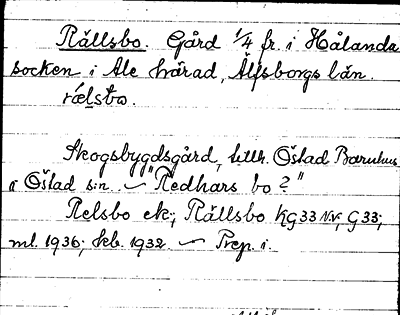 Rällsbo. Gård 1/4 fr. i Hålanda
socken i Ale härad, Älfsborgs län.
rɛ́lsbo.
Skogsbygdsgård, tillh. Östad Barnhus
i Östad s:n. — "Redhars bo?"
Relsbo ek.; Rällsbo KG33 N.V., G33;
ml. 1936; kb. 1932. — Prep. i.